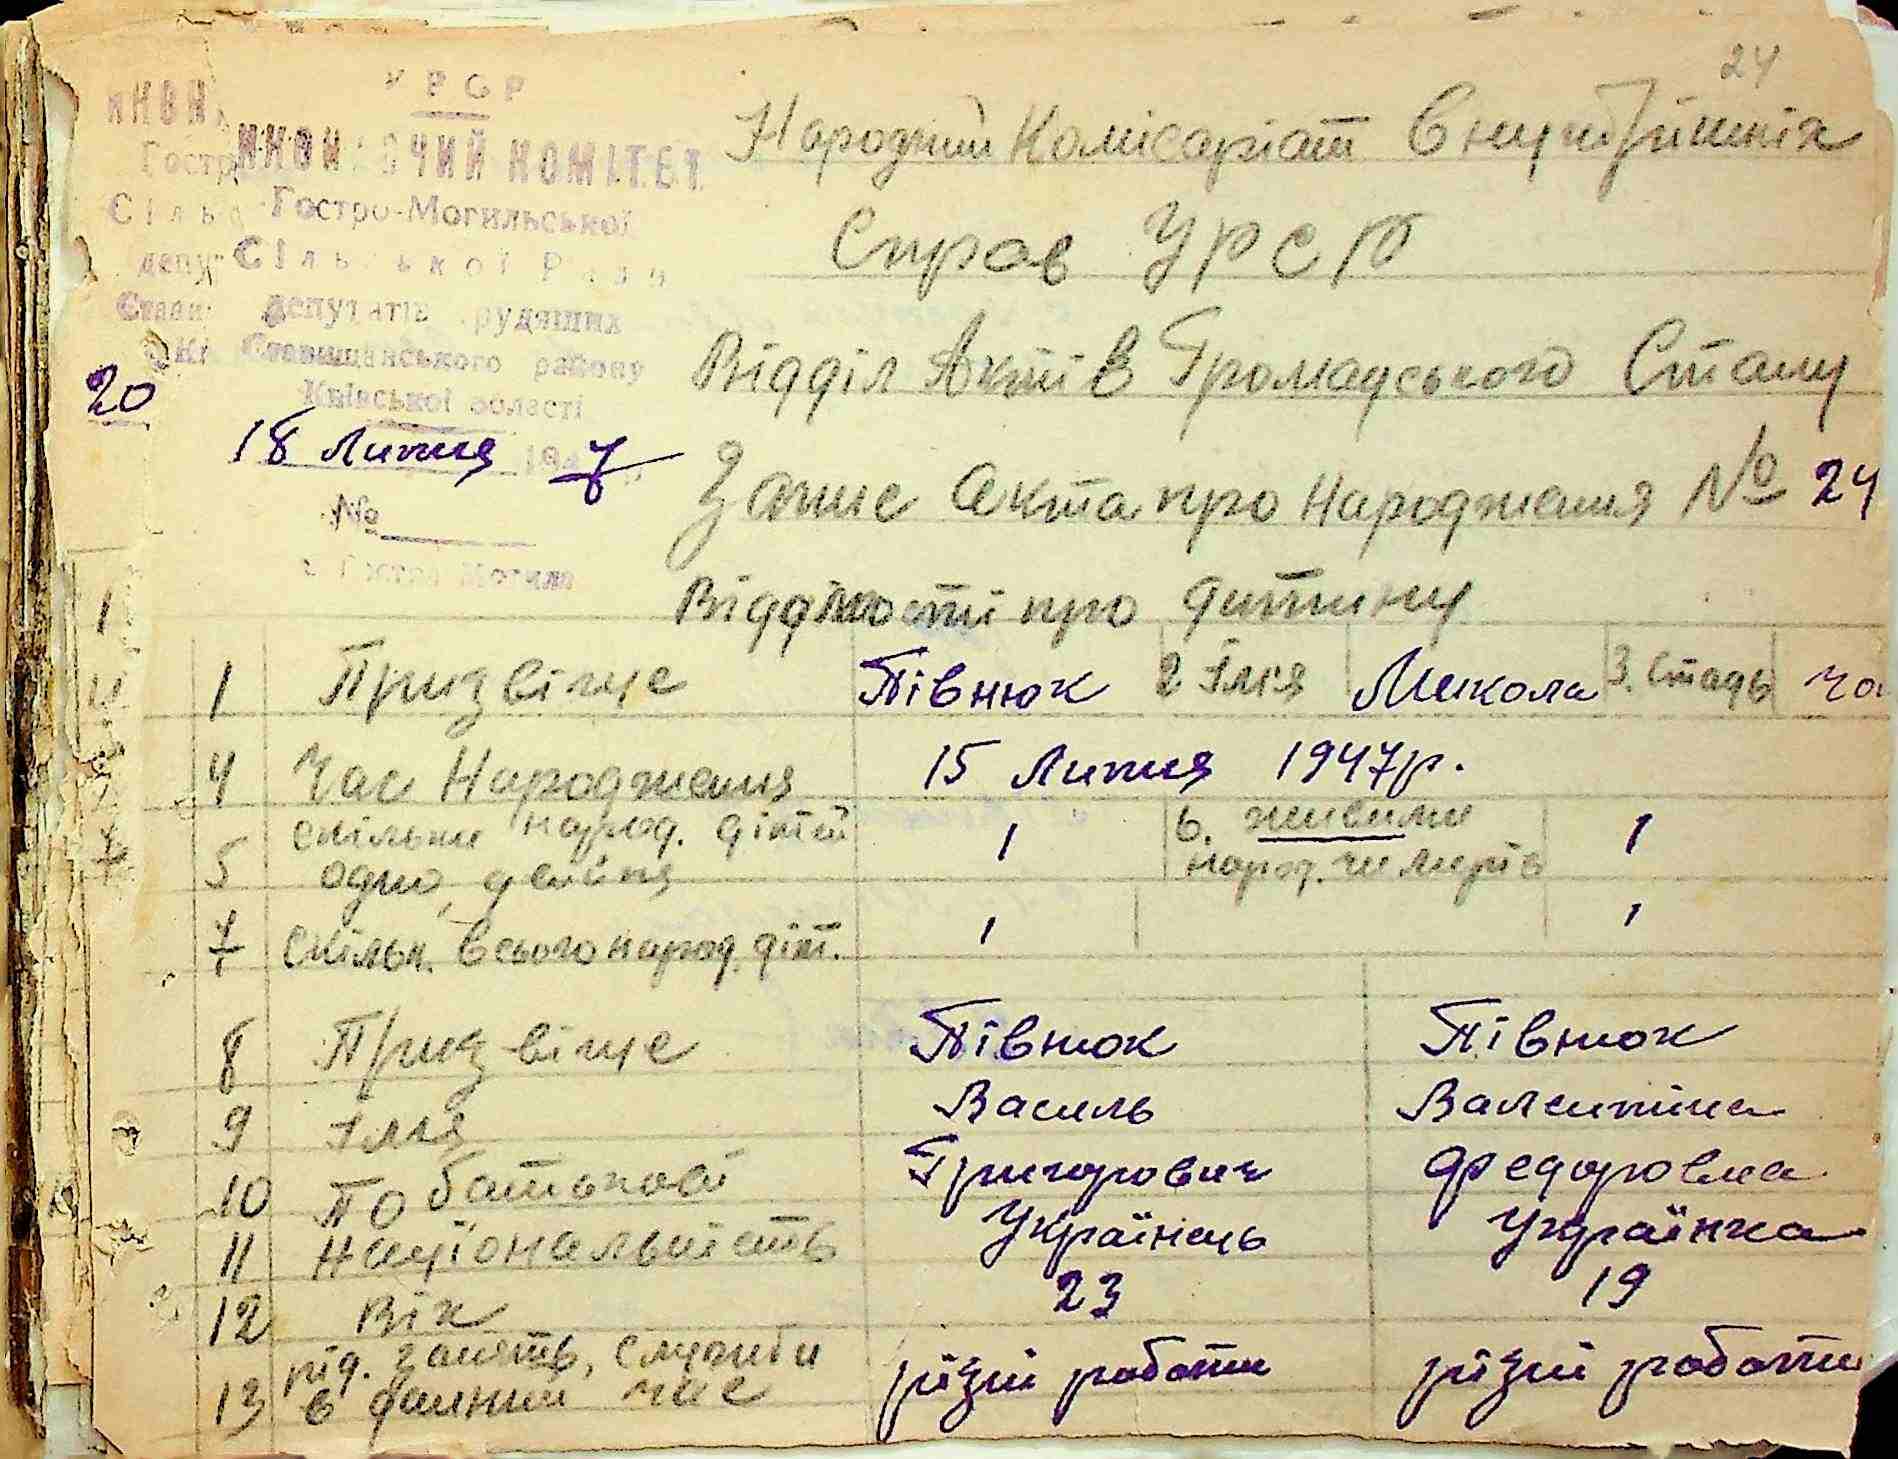 24
УРСР
ВИКОНАВЧИЙ КОМІТЕТ
Гостро-Могильської
Сільської Ради
депутатів трудящих
Ставищанського району
Київської області
20
18 Липня 1947
№
с. Гостра Могила
Народний Комісаріат Внутрішніх
Справ УРСР
Відділ Актів Громадського Стану
Запис Акта про Народження № 24
Відомості про дитину
1 Призвіще Півнюк 2 Імя Микола 3. Стать чол
4 Час Народження 15 Липня 1947р.
5 скільки народ. дітей одно, двойня 1 6. живими народ. чи мертв 1
7 скільк. всього народ. діт. 1 1
8 Призвіще Півнюк Півнюк
9 Імя Василь Валентина
10 По батькові Григорович Федоровна
11 Національність Українець Українка
12 Вік 23 19
13 рід. занять, служби в данний час різні роботи різні роботи